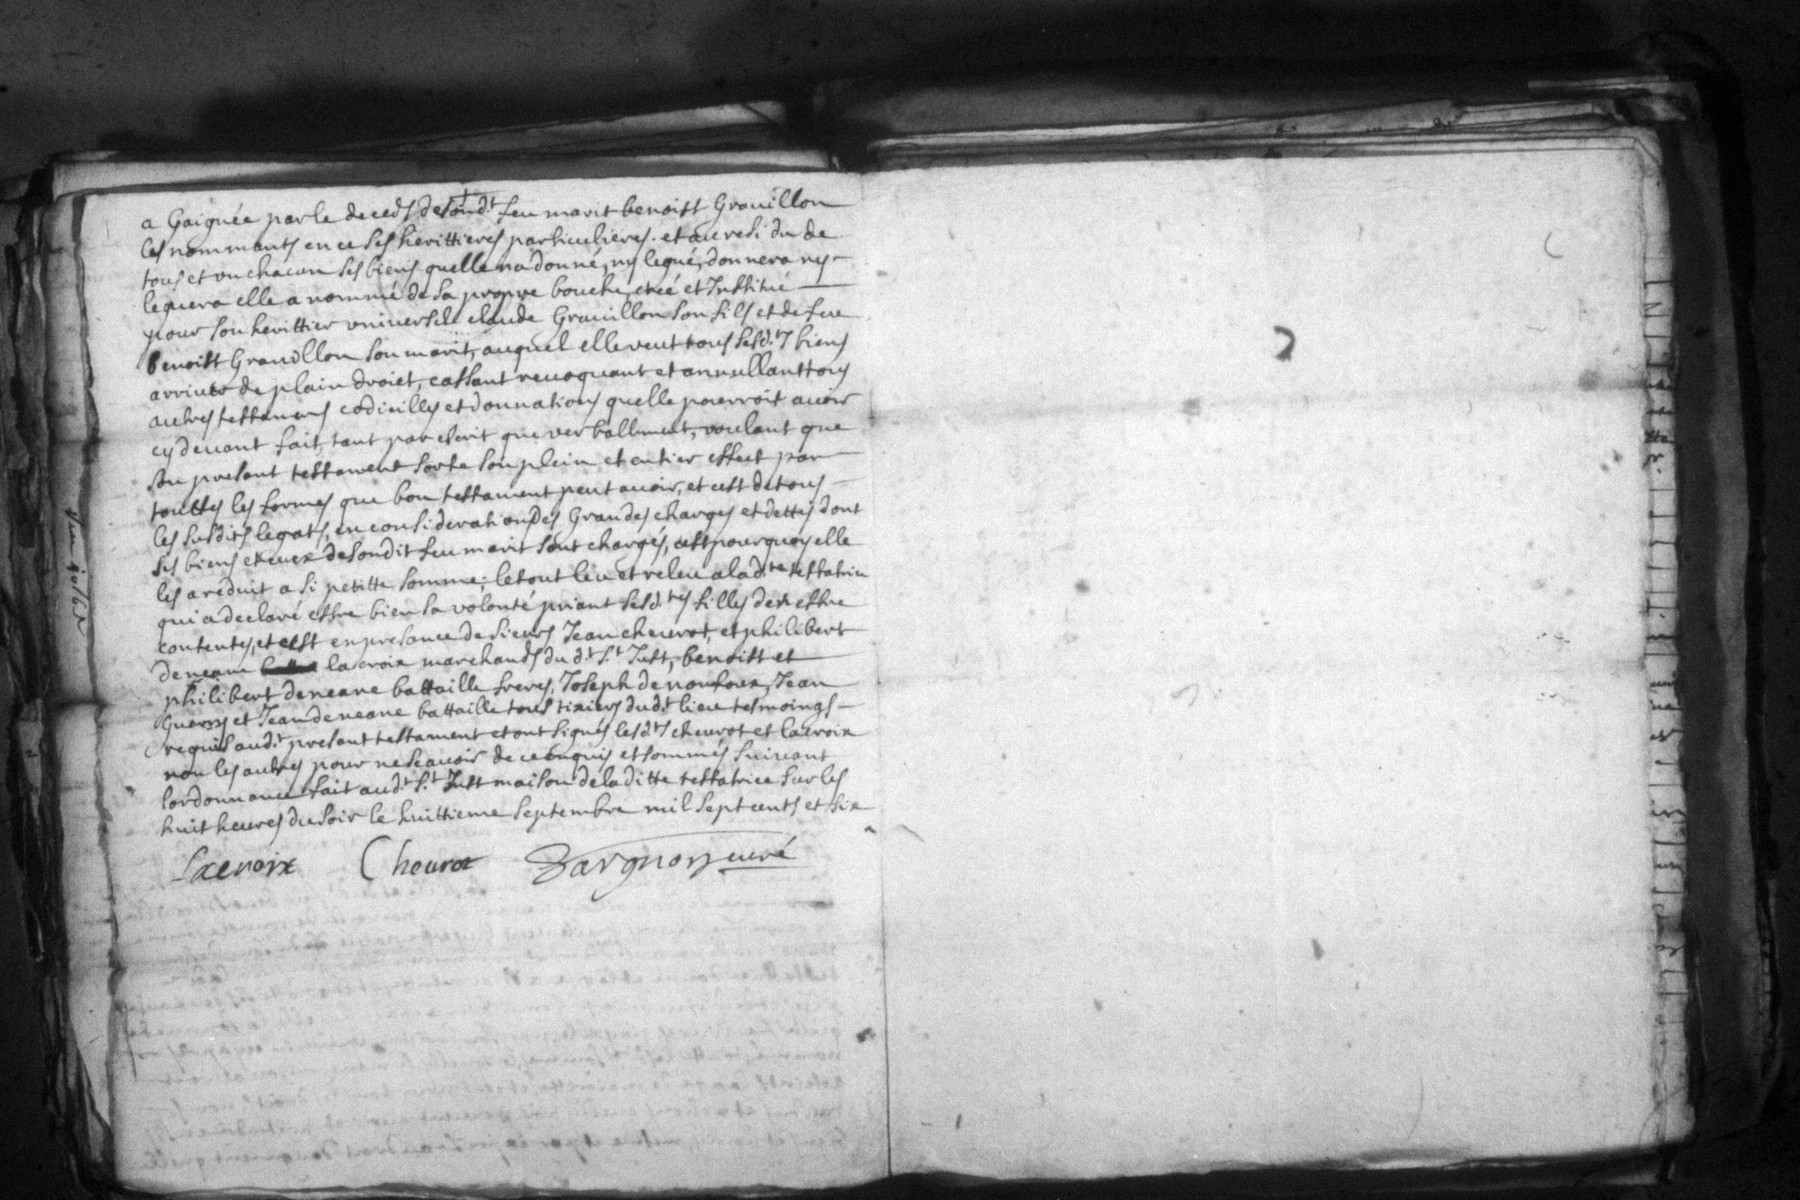 a Gaignée par le deceds de sond.t feu marit benoist Gravillon
les nommants en ce ses herittieres particulieres. et au residu de
tous et un chacun ses biens quelle na donné, ny legué, donnera ny
leguera elle a nommé de sa propre bouche, creé et Institué
pour son herittier universel claude Gravillon son fils et de feu
benoist Gravillon son marit, auquel elle veut tous sesd.ts biens
arriver de plain droict, cassant revoquant et annullant tous
autres testamens codicilles et donnations quelle pourroit avoir
cy devant fait, tant par escrit que verballement, voulant que
son present testament sorte son plein et entier effect par
touttes les formes que bon testament peut avoir, et cest de tous
les susdits legats, en consideration des Grandes charges et dettes dont
ses biens et ceux de sondit feu marit sont chargés, cest pourquoy elle
les a reduit a si petitte somme; le tout leu et releu a lad.te testatrice
qui a declaré estre bien sa volonté priant sesd.tes filles den estre
contentes, et cest en presance de sieurs Jean cheurot, et philibert
deneane lacroix marchands du d.t S.t Just, benoist et
philibert deneane battaille freres, Joseph de Jean
et Jean deneane battaille tous tixiers dud.t lieu tesmoings
requis aud.t presant testament et ont signés lesd.ts cheurot et lacroix
non les autres pour ne scavoir de ce enquis et sommés suivant
lordonnance fait aud.t S.t Just maison de la ditte testatrice sur les
huit heures du soir le huittieme septembre mil sept cents et six
Lacroix Cheurot Dargnon curé